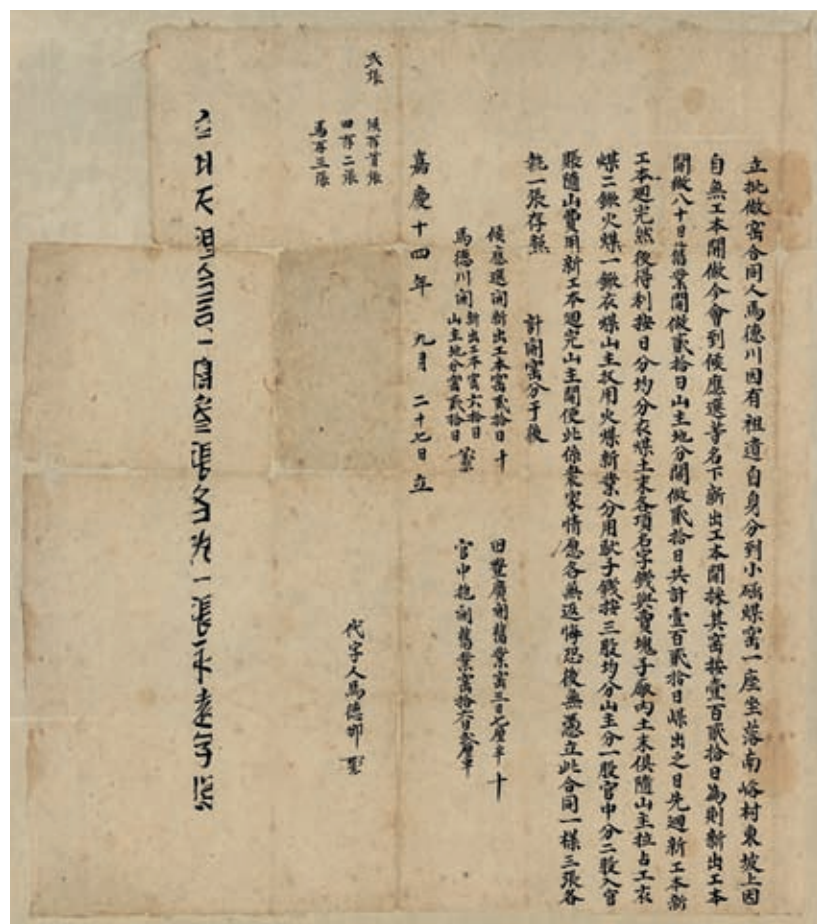 立批做窑合同人馬德川因有祖遺自身分到小磁煤窑一座坐落南峪村東坡上因
自無工本開做今會到候應選等名下新出工本開採其窑按壹百貳拾日為則新出工本
開做八十日舊業開做貳拾日山主地分開做貳拾日共計壹百貳拾日煤出之日先迴新工本新
工本迴完然後得利按日分均分衣煤土末各項名字錢與賣塊子廠內土末俱隨山主拉占工衣
煤二鍬火煤一鍬衣煤山主収用火煤新業分用馱子錢按三股均分山主分一股官中分二股入官
賬隨山費用新工本迴完山主開使此係衆家情愿各無返悔恐後無憑立此合同一樣三張各
執一張存照 計開窑分于後
候應選開新出工本窑貳拾日 十
馬德川開 新出工本窑六拾日
山主地分窑貳拾日
田 廣開舊業窑三日七厘半 十
官中拖開舊業窑拾六日叁厘半
嘉慶十四年 九月 二十七日 立
代字人馬德邦
弍張
候存首張
田存二張
馬存三張
合同一樣叁張各執一張永遠存照